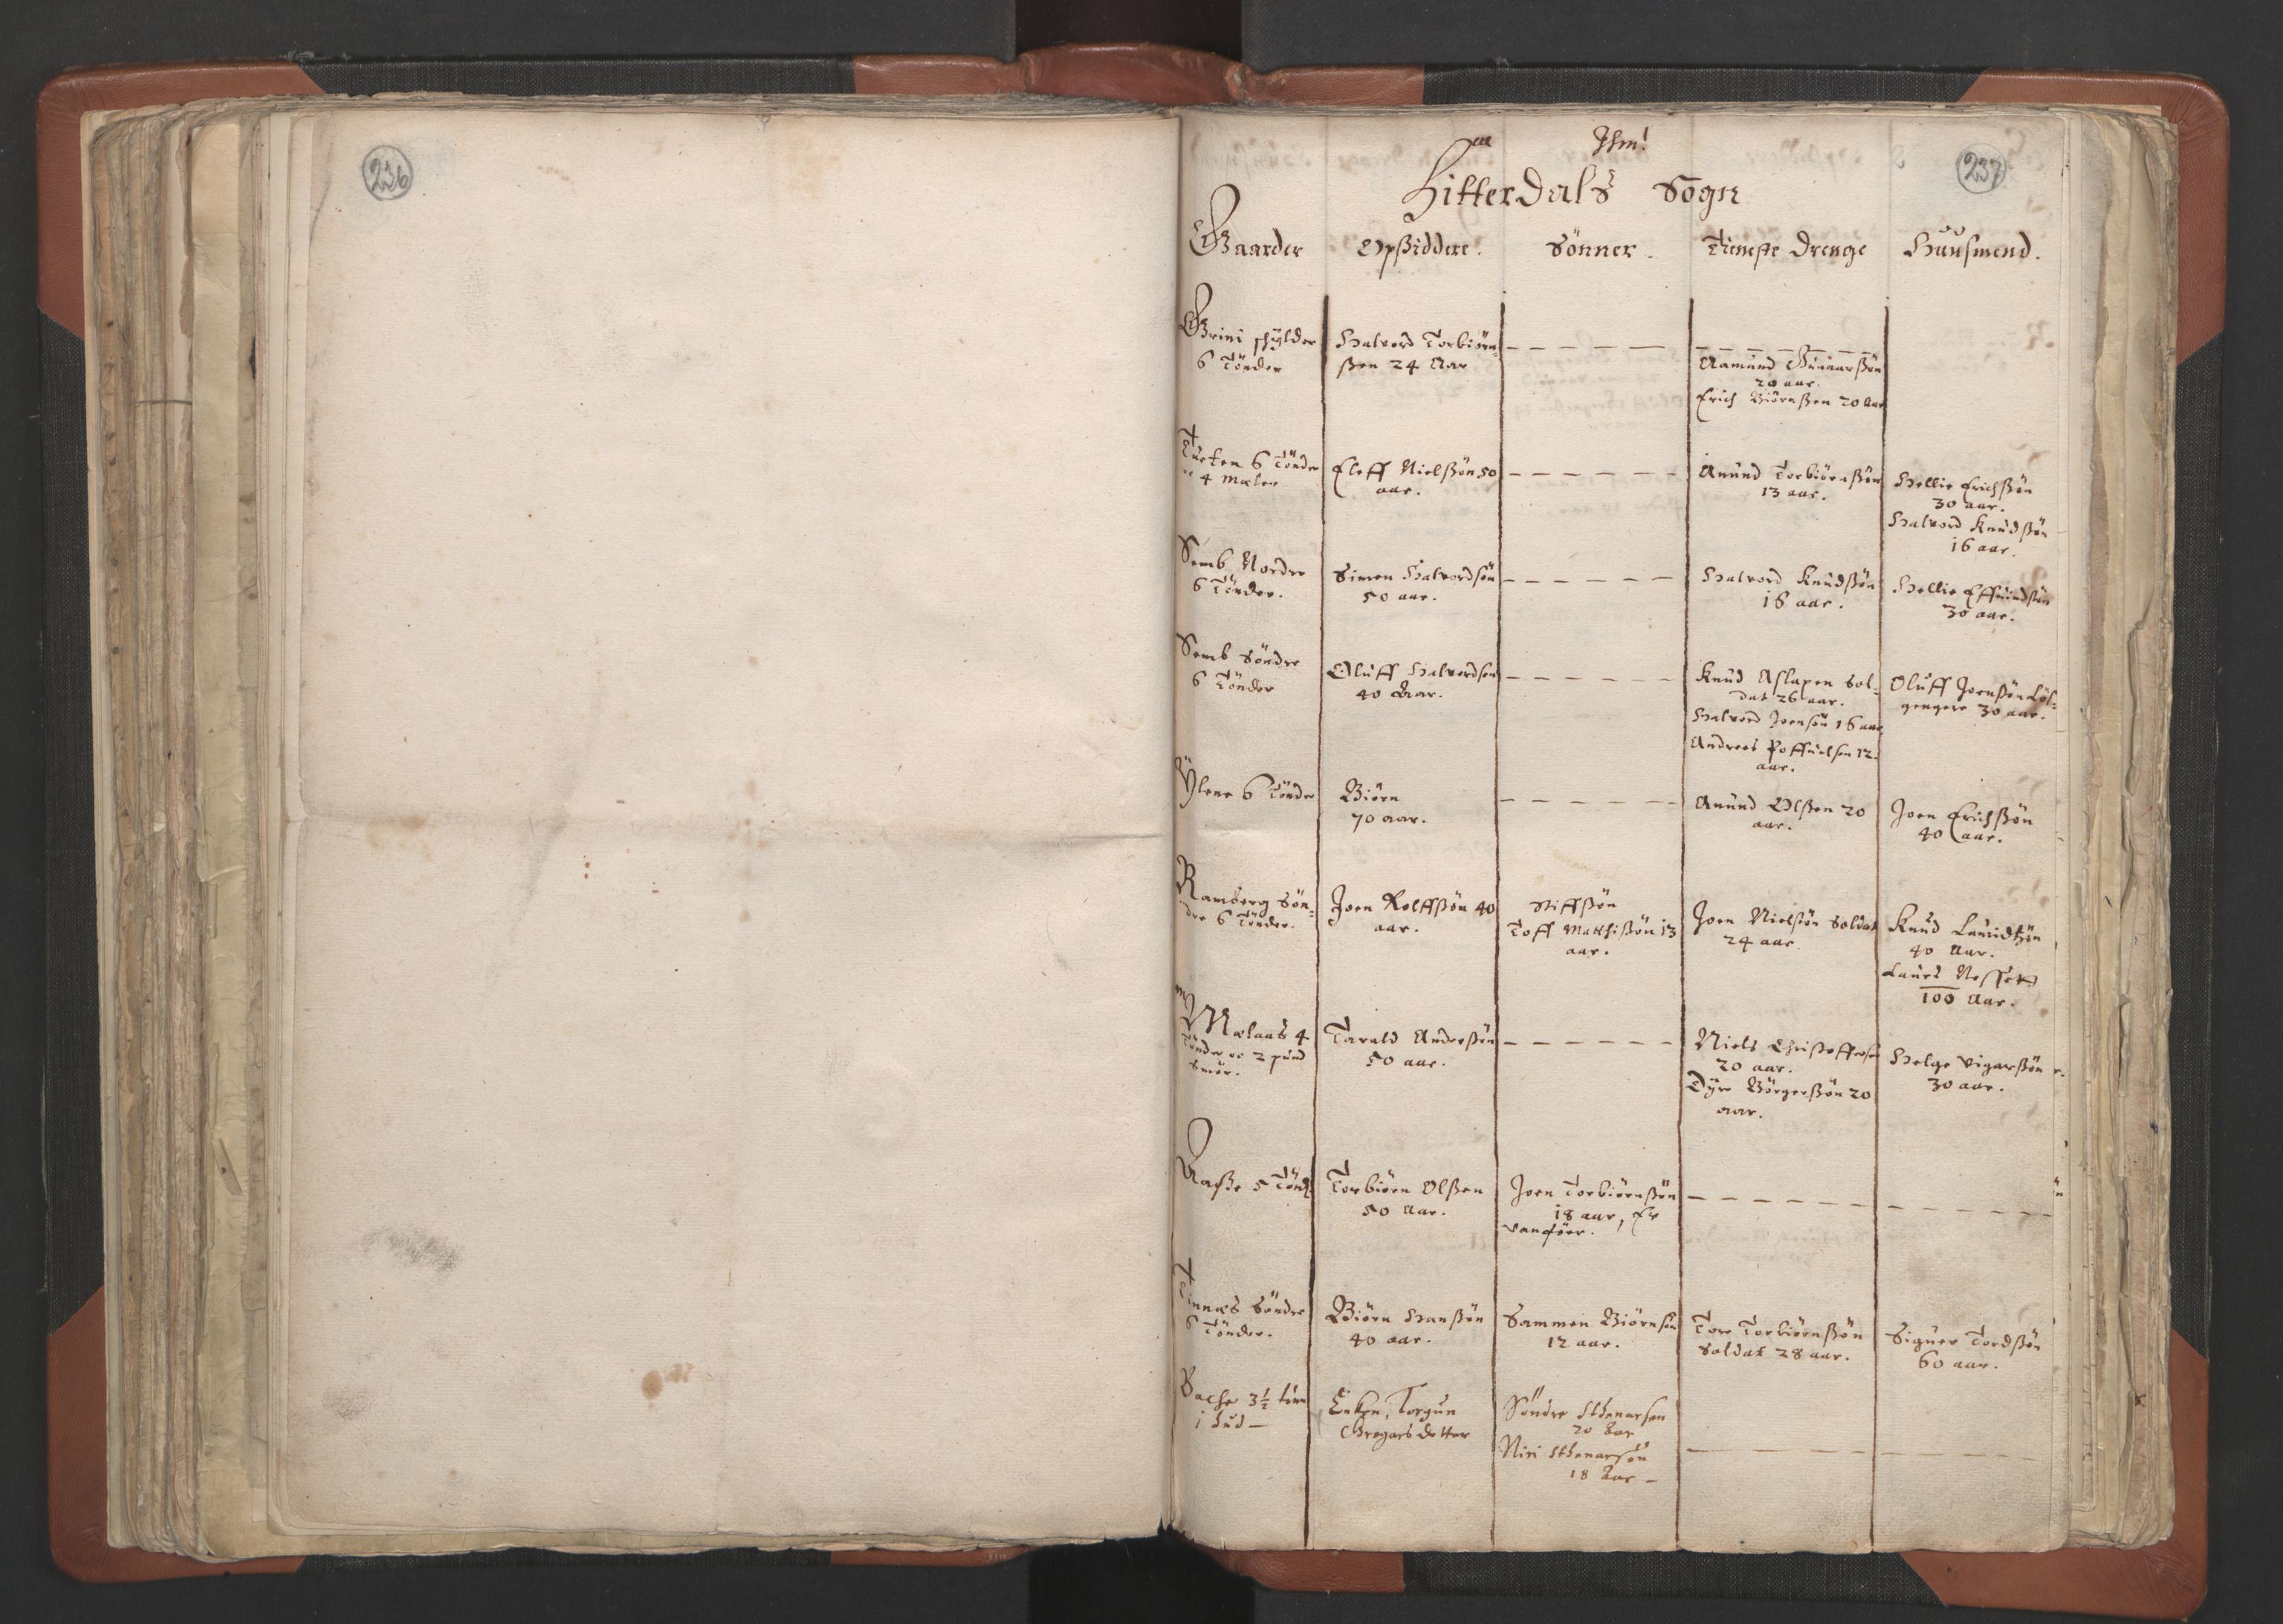 236
237
Jhm!
Hitterdals Sogn
Gaarder Opsiddere. Sönner. Tieneste Drenge Huusmend.
Grini schylder
6 Tönder
Halvord Torbiörn-
ßen 24 Aar
Aamund Gunarßön
20 aar.
Erich Biörnßen 20 Aar
Tueten 6 Tönder
oc 4 Meler
Eleff Nielßön 50
aar.
Anund Torbiörnßön
13 aar.
Hellie Erichßön
30 aar.
Halvord Knudßön
16 aar.
Semb Nordre
6 Tönder.
Simen Halvordsön
50 aar.
Halvord Knudßön
16 aar.
Hellie Effuindßön
30 aar.
Semb Söndre
6 Tönder
Oluff Halvordsen
40 Aar.
Knud Aslaxen Sol-
dat 26 aar.
Halvord Joensön 16 aar
Andreas Poffuelsen 12.
aar.
Oluff Joenßön Löß-
gengere 30 aar.
Ylene 6 Tönder
Biörn
70 aar.
Anund Olßen 20
aar.
Joen Erichßön
40 aar.
Ramberg Sön-
dre 6 Tönder.
Joen Rolffßön 40
aar.
Stiffßön
Toff Matthißön 13
aar.
Joen Nielsön Soldat
24 aar.
Knud Lauridtzön
40 Aar.
Laurs Nesset
100 Aar.
Mælaas 4
Tönder oc 2 pund
Smör.
Tarald Anderßön
50 aar.
Niels Christoffersen
20 aar.
Dyre Börgerßön 20
aar.
Helge Vigarßön
30 aar.
Aaße 5 Tönd
Torbiörn Olßen
50 Aar.
Joen Torbiörnßön
18 aar, Er
vanför.
Tinnæs Söndre
6 Tönder.
Biörn Hanßön
40 aar.
Sammen Biörnsön
12 aar.
Tore Torbiörnßön
Soldat 28 aar.
Siguer Tordßön
60 aar.
Bache 3½
1 hud
Enken, Torgun
Gregars dotter
Söndre Sthenarsen
20 Aar
Niri Sthenarsön
18 Aar